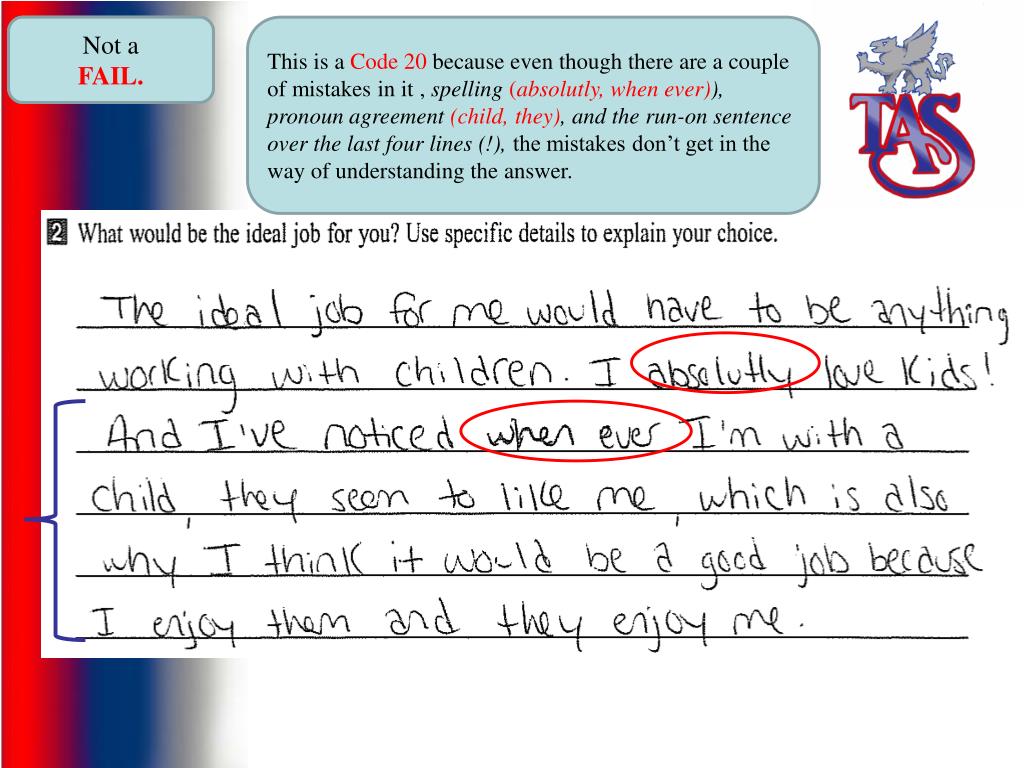 Not a
FAIL.
This is a Code 20 because even though there are a couple
of mistakes in it , spelling (absolutly, when ever)),
pronoun agreement (child, they), and the run-on sentence
over the last four lines (!), the mistakes don’t get in the
way of understanding the answer.
TAS
2 What would be the ideal job for you? Use specific details to explain your choice.
The ideal job for me would have to be anything
working with children. I absolutly love kids!
And I've noticed when ever I'm with a
child, they seem to like me, which is also
why I think it would be a good job because
I enjoy them and they enjoy me.